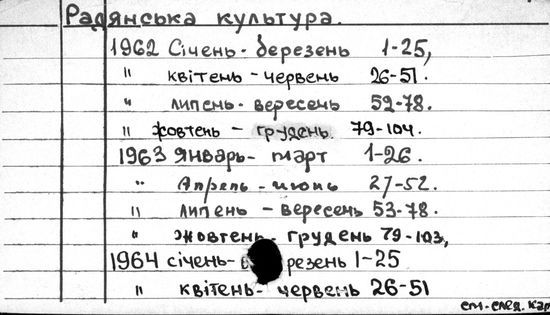 Радянська культура.
1962 Січень- березень 1-25,
" квітень-червень 26-51.
" липень- вересень 52-78.
" жовтень - грудень. 79-104.
1963 Январь- март 1-26.
" Апрель-июнь 27-52.
" липень - вересень 53-78.
" жовтень- грудень 79-103,
1964 січень- резень 1-25
" квітень- червень 26-51
см-след. кар